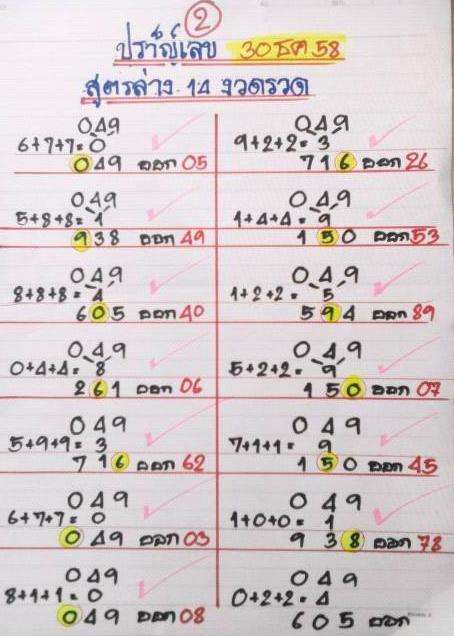 2
ปราชญ์เลข 30 ธค 58
สูตรล่าง 14 งวดรวด
049
6+7+7= 0
049 ออก 05
049
5+8+8= 1
938 ออก 49
049
8+8+8= 4
605 ออก 40
049
0+4+4= 8
261 ออก 06
049
5+9+9= 3
716 ออก 62
049
6+7+7= 0
049 ออก 03
049
8+1+1= 0
049 ออก 08
049
9+2+2= 3
716 ออก 26
049
1+4+4= 9
150 ออก 53
049
1+2+2= 5
594 ออก 89
049
5+2+2= 9
150 ออก 07
049
7+1+1= 9
150 ออก 45
049
1+0+0= 1
938 ออก 78
049
0+2+2= 4
605 ออก